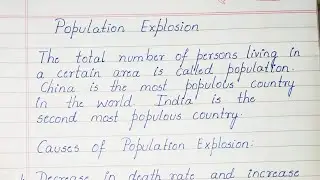 Population Explosion
The total number of persons living in
a certain area is called population.
China is the most populous country
in the world. India is the
second most populous country.
Causes of Population Explosion:
Decrease in death rate and increase